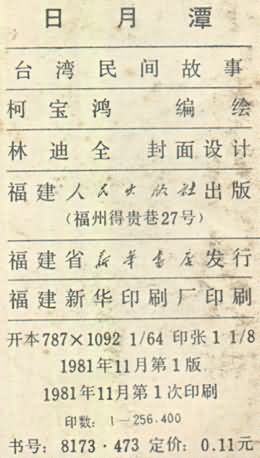 日月潭
台湾民间故事
柯宝鸿 编绘
林迪全 封面设计
福建人民出版社出版
(福州得贵巷27号)
福建省新华书店发行
福建新华印刷厂印刷
开本787×1092 1/64 印张1 1/8
1981年11月第1版
1981年11月第1次印刷
印数：1—256.400
书号：8173·473 定价：0.11元